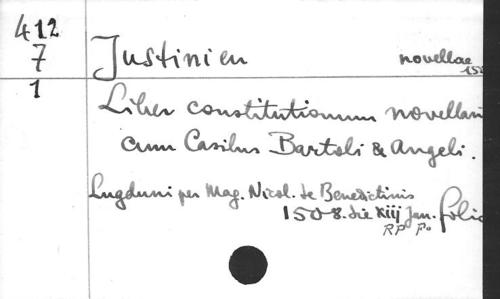 412
7
1
Justinien novellae
Liber constitutionum novellarum
cum Casibus Bartoli & Angeli.
Lugduni per Mag. Nicol. de Benedictinis
1508. die xiij Jan. folio
RP Fo